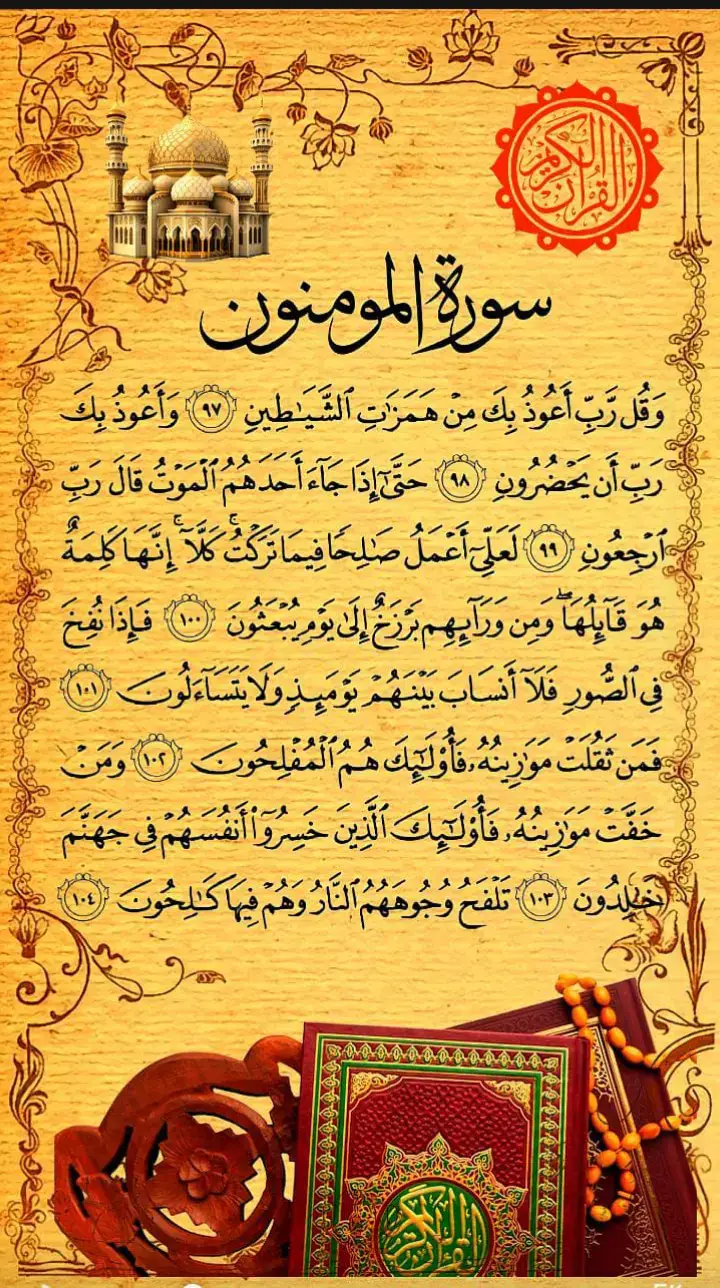 القرآن الكريم
سورة المومنون
وَقُل رَّبِّ أَعُوذُ بِكَ مِنْ هَمَزَٰتِ ٱلشَّيَٰطِينِ ٩٧ وَأَعُوذُ بِكَ
رَبِّ أَن يَحْضُرُونِ ٩٨ حَتَّىٰٓ إِذَا جَآءَ أَحَدَهُمُ ٱلْمَوْتُ قَالَ رَبِّ
ٱرْجِعُونِ ٩٩ لَعَلِّىٓ أَعْمَلُ صَٰلِحًا فِيمَا تَرَكْتُ ۚ كَلَّآ ۚ إِنَّهَا كَلِمَةٌ
هُوَ قَآئِلُهَا ۖ وَمِن وَرَآئِهِم بَرْزَخٌ إِلَىٰ يَوْمِ يُبْعَثُونَ ١٠٠ فَإِذَا نُفِخَ
فِى ٱلصُّورِ فَلَآ أَنسَابَ بَيْنَهُمْ يَوْمَئِذٍ وَلَا يَتَسَآءَلُونَ ١٠١
فَمَن ثَقُلَتْ مَوَٰزِينُهُۥ فَأُو۟لَٰٓئِكَ هُمُ ٱلْمُفْلِحُونَ ١٠٢ وَمَنْ
خَفَّتْ مَوَٰزِينُهُۥ فَأُو۟لَٰٓئِكَ ٱلَّذِينَ خَسِرُوٓا۟ أَنفُسَهُمْ فِى جَهَنَّمَ
خَٰلِدُونَ ١٠٣ تَلْفَحُ وُجُوهَهُمُ ٱلنَّارُ وَهُمْ فِيهَا كَٰلِحُونَ ١٠٤
القرآن الكريم